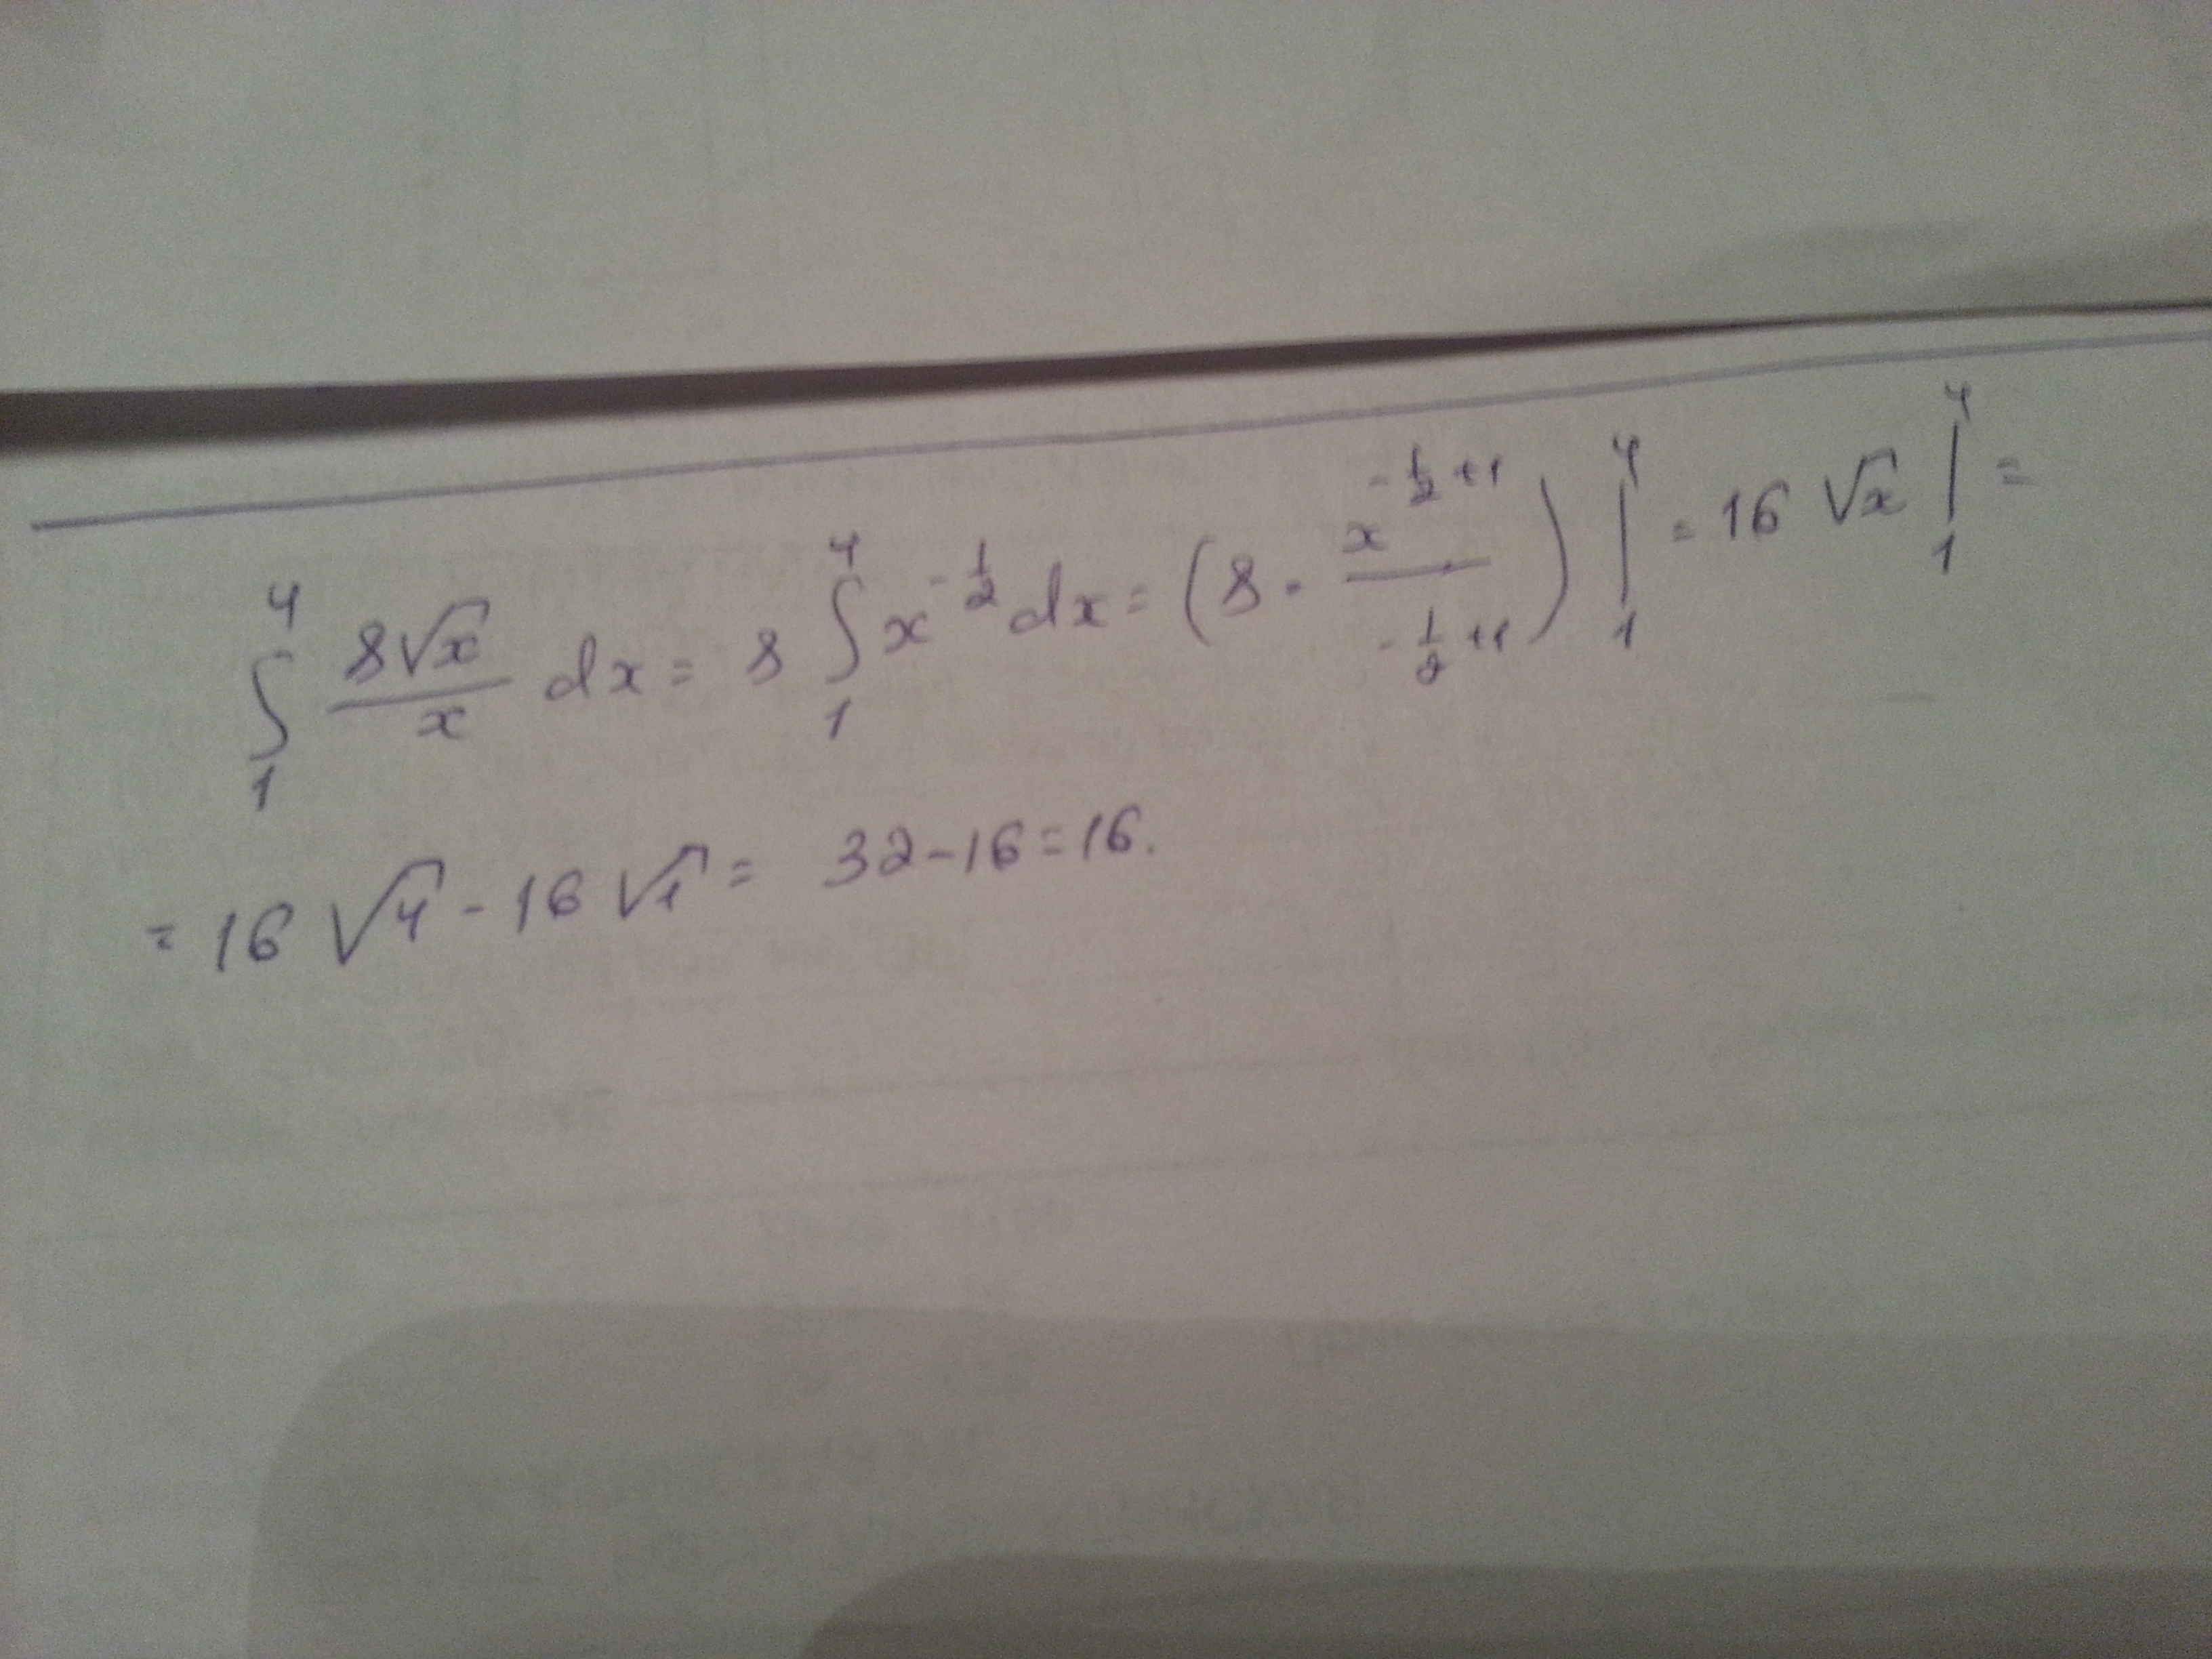 ∫₁⁴ 8√x/x dx = 8 ∫₁⁴ x^(-1/2) dx = (8 · x^(-1/2+1)/(-1/2+1)) |₁⁴ = 16 √x |₁⁴ =
= 16 √4 - 16 √1 = 32 - 16 = 16.